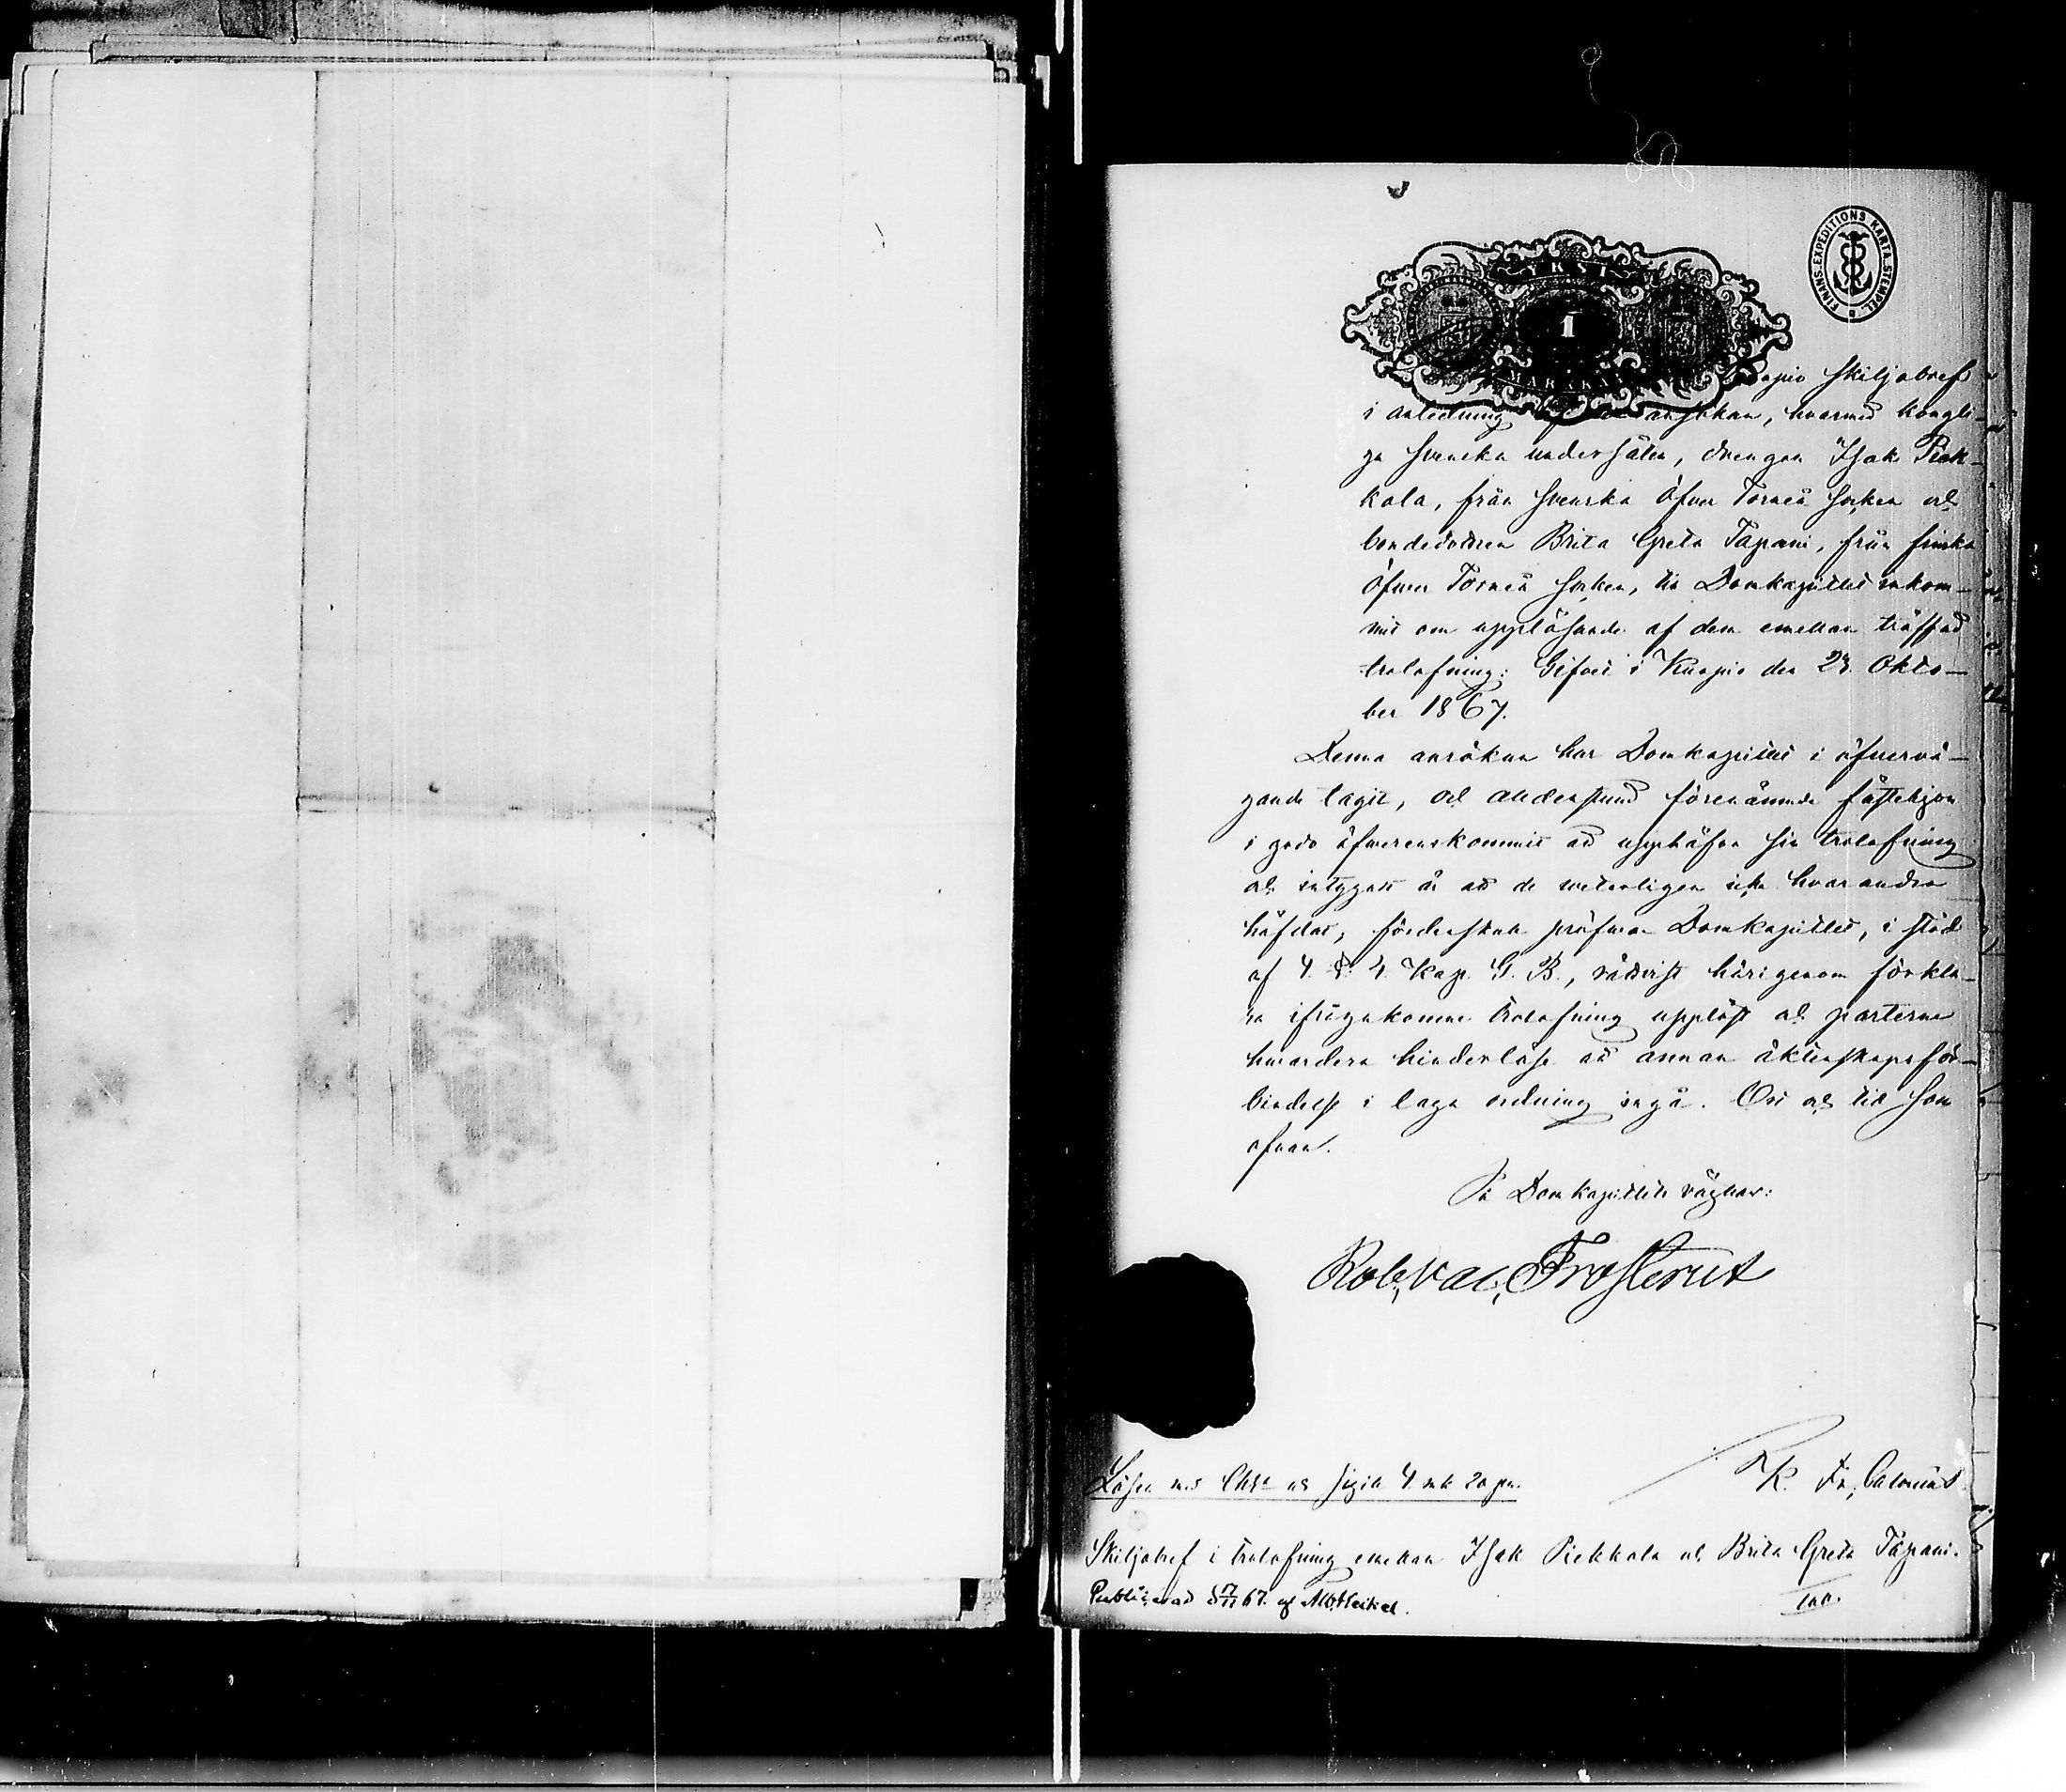 FINANS-EXPEDITIONS KARTA-STEMPEL
YKSI
1
MARKKA
Kuopio Skiljobref
i anledning ansökan, hvarmed kongli-
ga svenska undersåten, drengen Isak Piek-
kola, från svenska Öfver Torneå socken och
bondedottren Brita Greta Tapani, från finska
Öfver Torneå socken, till Domkapitlet inkom-
mit om upplösande af dem emellan träffad
trolofning: Gifvet i Kuopio den 23 Okto-
ber 1867.
Denna ansökan har Domkapitlet i öfvervä-
gande tagit, och alldenstund förenämnde fästehjon
i godo öfverenskommit att upphäfva sin trolofning
och intygadt är att de veterligen icke hvarandra
häfdat, fördenskull pröfvar Domkapitlet, i stöd
af 4. §. 4. Kap. G. B., rättvist härigenom förkla-
ra ifrågakomne trolofning upplöst och parterne
hvardera hinderlöse att annan äktenskapsför-
bindelse i laga ordning ingå. Ort och tid som
ofvan.
På Domkapitlets vägnar:
Rob. Val. Frosterus
Lösen med Chta och sigill 4 mk 20 pn.
K. Fr. Calamnius
Skiljobref i trolofning emellan Isak Piekkola och Brita Greta Tapani.
Publicerad 17/11 67. af